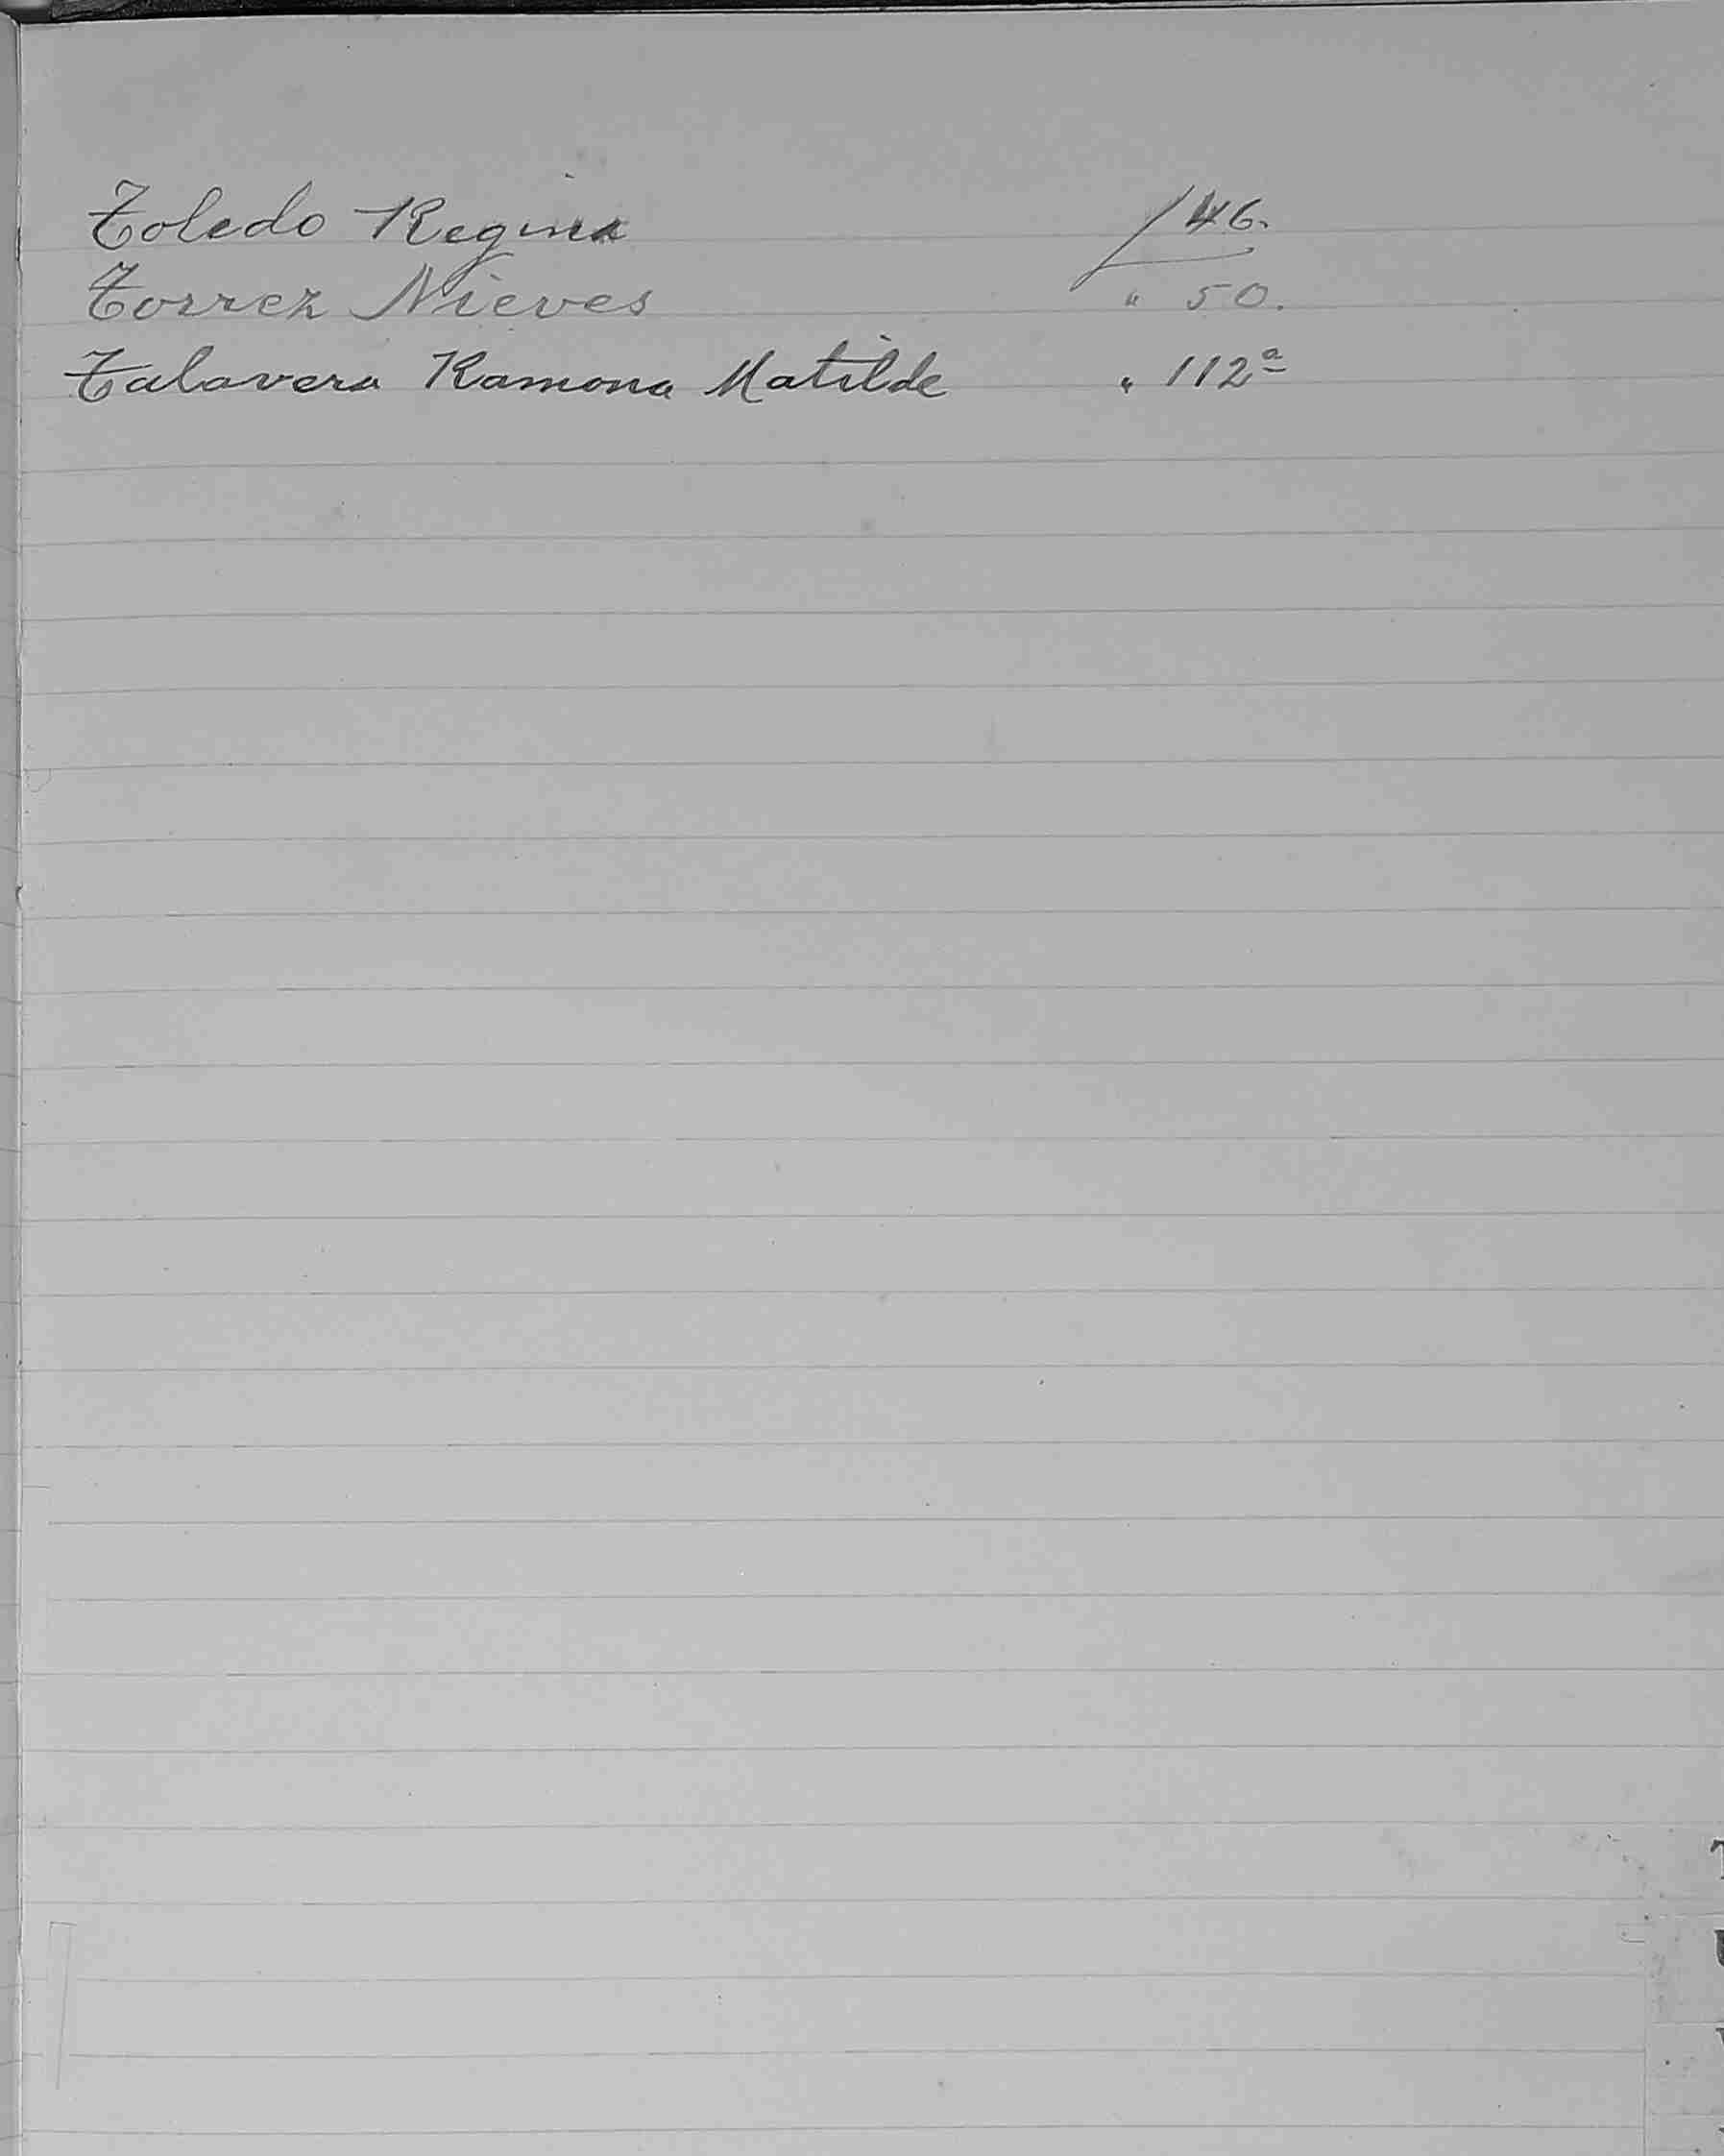 Toledo Regina / 46.
Torrez Nieves " 50.
Talavera Ramona Matilde " 112ª